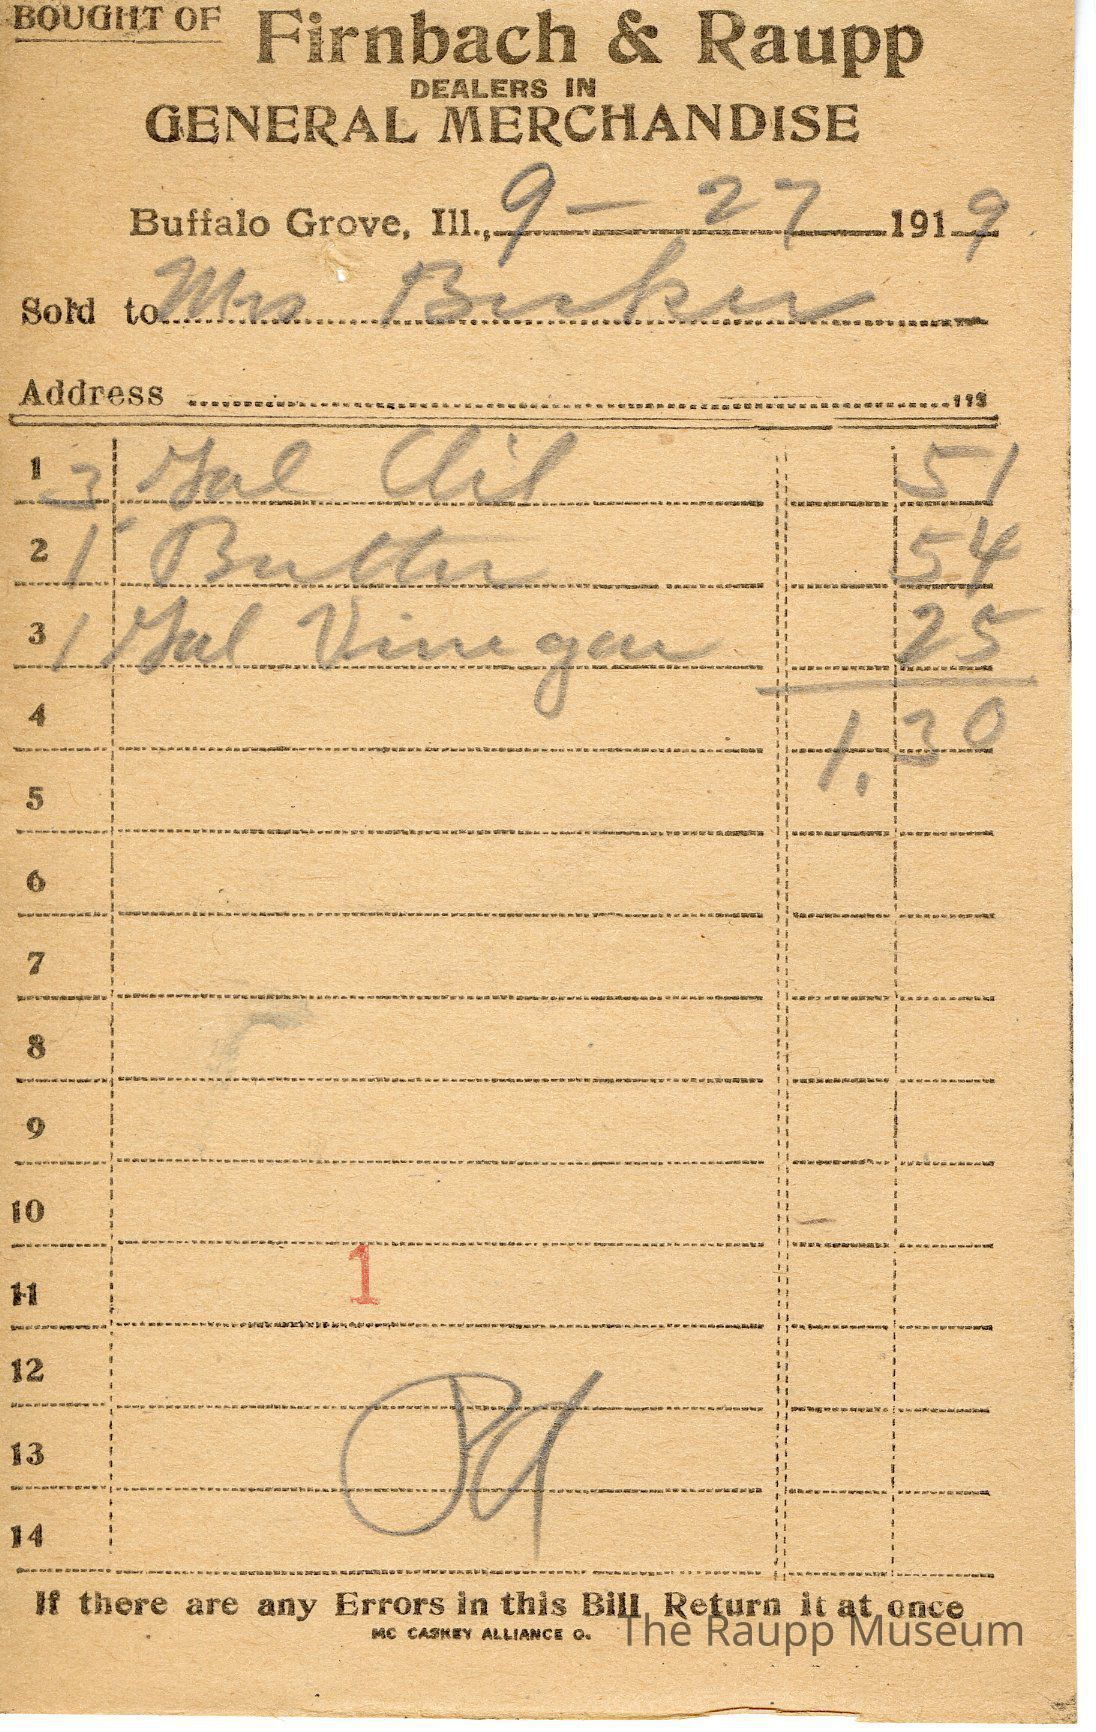 BOUGHT OF Firnbach & Raupp
DEALERS IN
GENERAL MERCHANDISE
Buffalo Grove, Ill., 9 - 27 1919
Sold to Mrs
Address
1 3 Gal Oil 51
2 1 Butter 54
3 1 Gal Vinegar 25
4 1.30
5
6
7
8
9
10
1
11
12
Pd
13
14
If there are any Errors in this Bill Return it at once
MC CASKEY ALLIANCE O.
The Raupp Museum